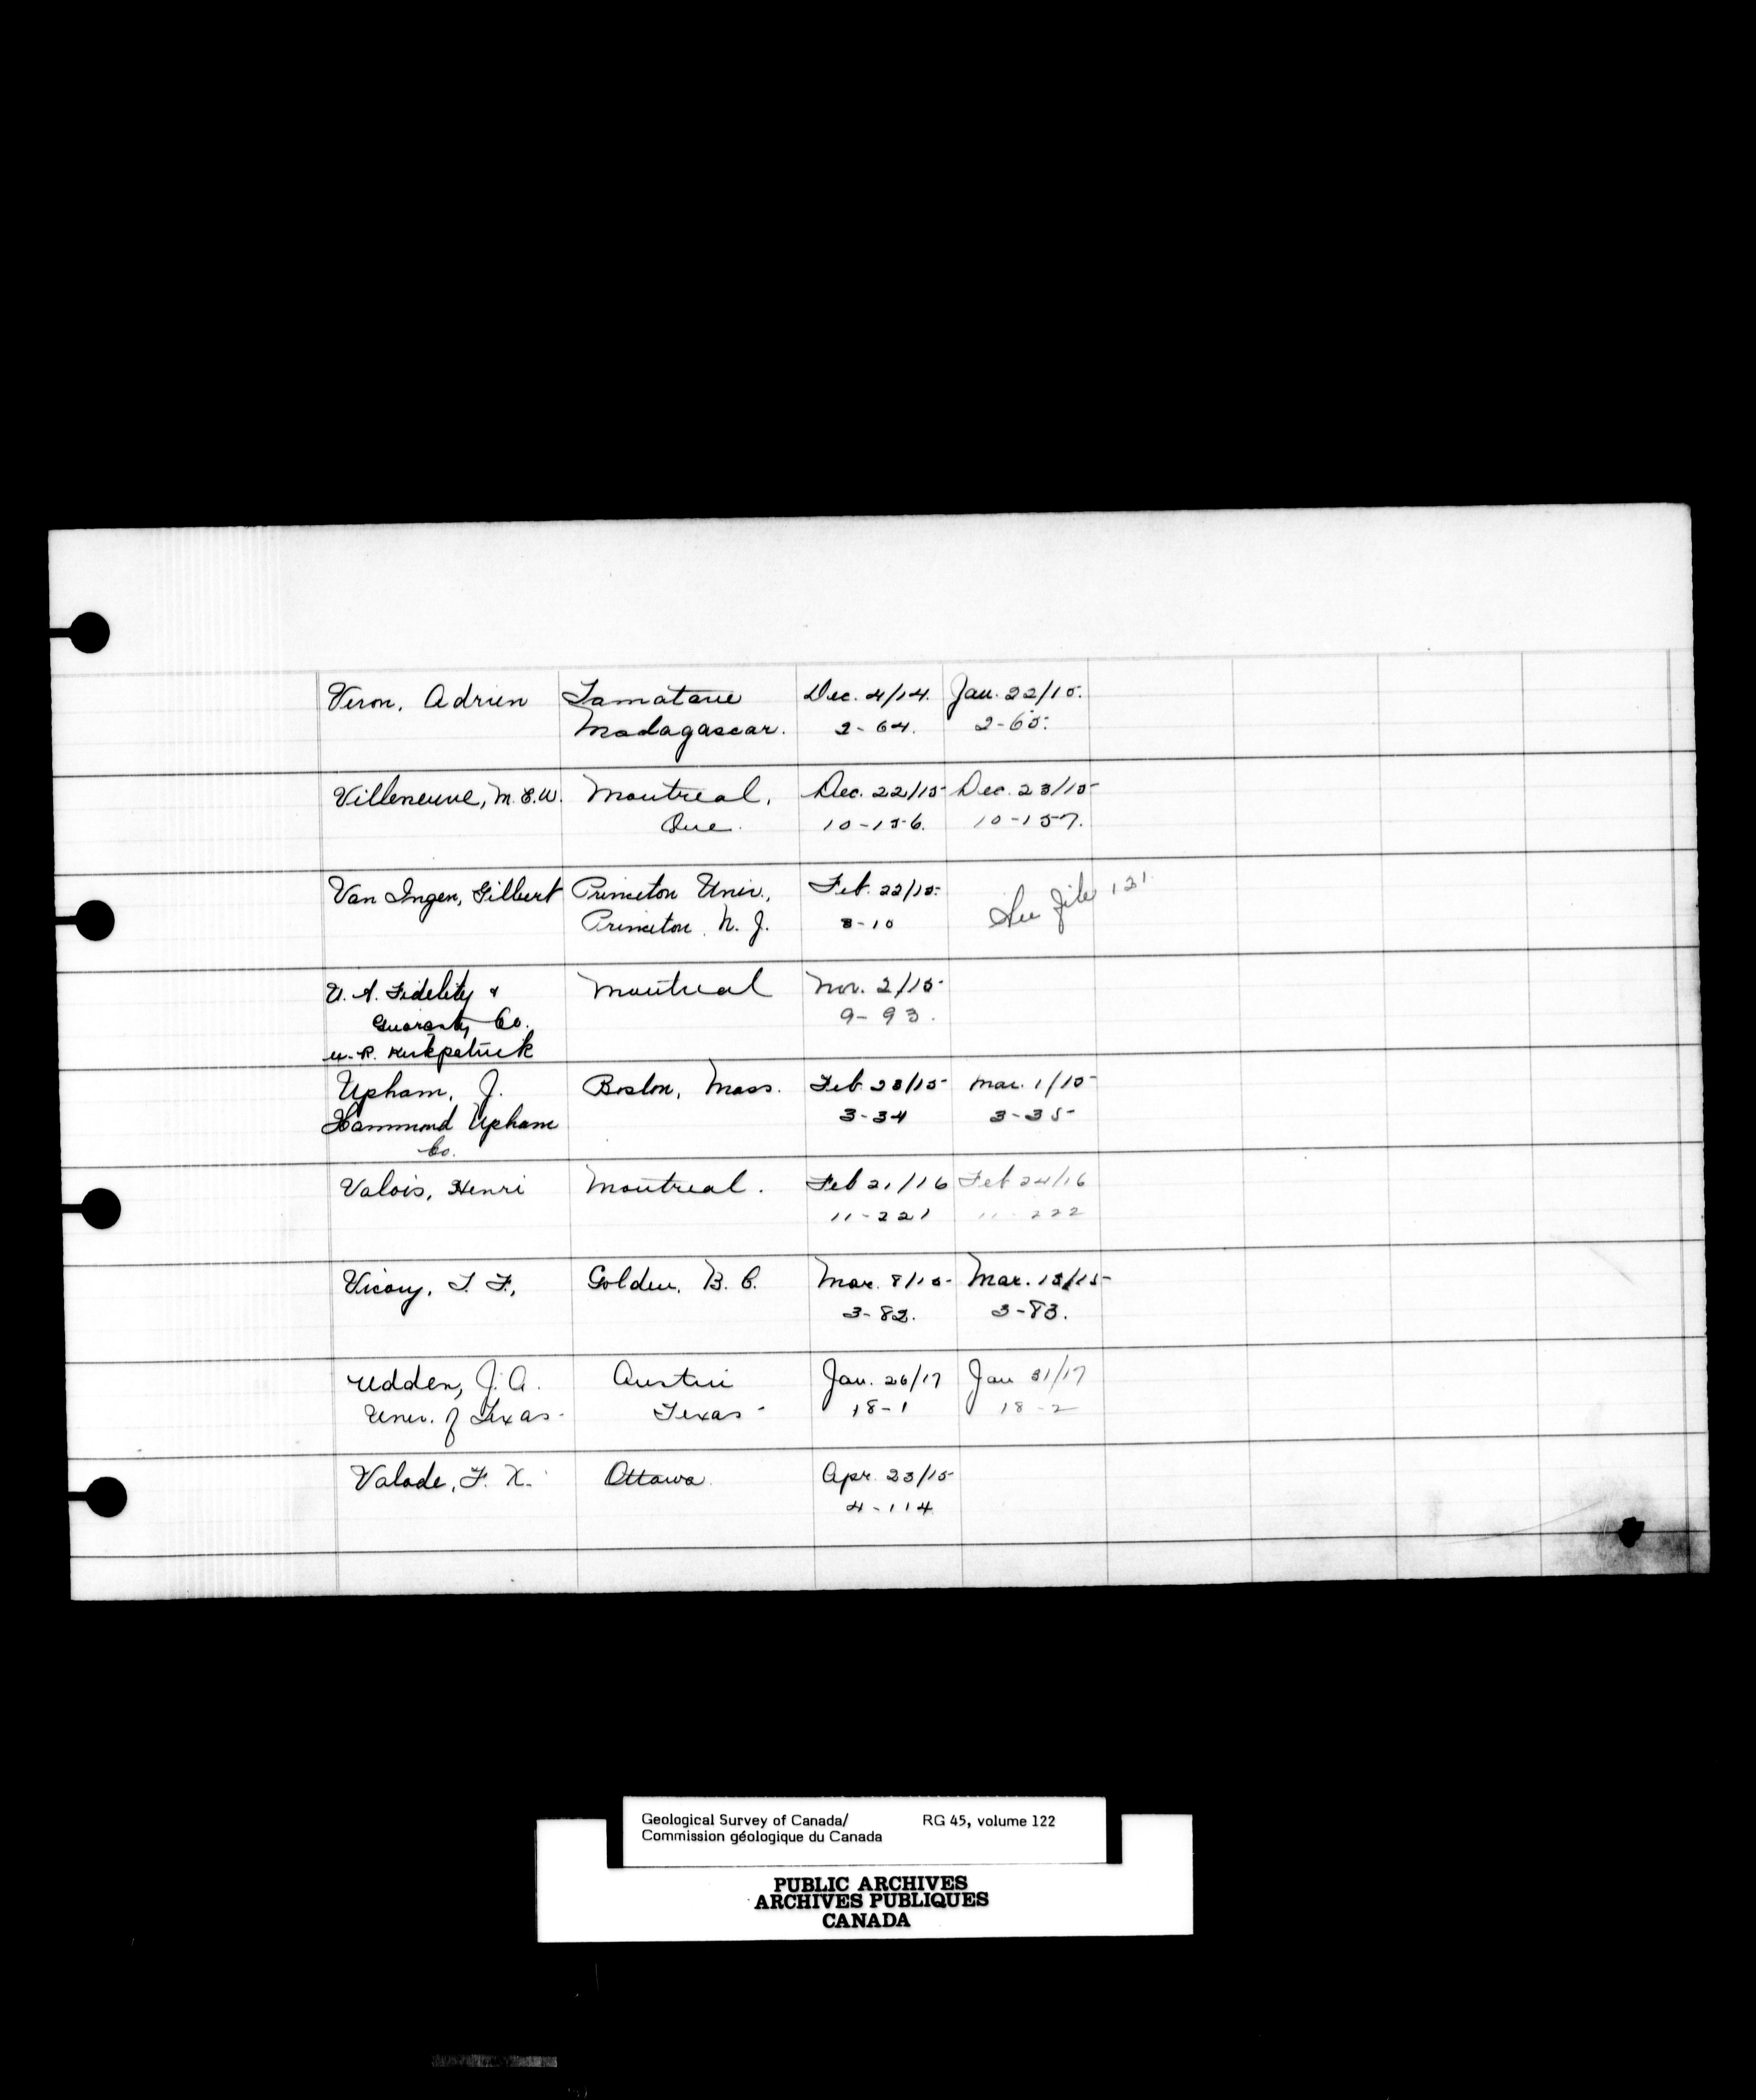 Veron, Adrien Tamatave Dec. 4/14. Jan. 22/15.
Madagascar. 2-64. 2-65.
Villeneuve, M.E.W. Montreal, Dec. 22/15 Dec. 23/15
Que. 10-156. 10-157.
Van Ingen, Gilbert Princeton Univ., Feb. 22/15. See file 121
Princeton, N. J. 3-10
U. S. Fidelity & Montreal Nov. 2/15
Guaranty Co. 9-93.
Kirkpatrick
Upham, J. Boston, Mass. Feb 23/15 Mar. 1/15
Hammond Upham 3-34 3-35
Co.
Valois, Henri Montreal. Feb 21/16 Feb 24/16
11-221 11-222
Vicary, T. F., Golden, B. C. Mar. 8/15 Mar. 15/15
3-82. 3-83.
Udden, J. A. Austin Jan. 26/17 Jan 31/17
Univ. of Texas Texas 18-1 18-2
Valade, F. X. Ottawa. Apr. 23/15
4-114
Geological Survey of Canada/ RG 45, volume 122
Commission géologique du Canada
PUBLIC ARCHIVES
ARCHIVES PUBLIQUES
CANADA